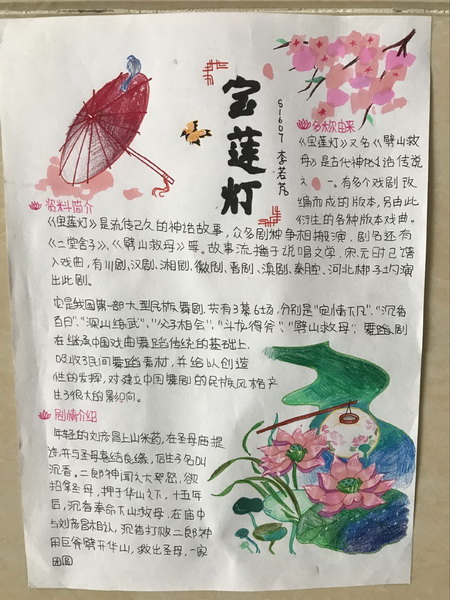 宝莲灯
S1607 李若芃
名称由来
《宝莲灯》又名《劈山救
母》是古代神话传说
之一,有多个戏剧改
编而成的版本,另由此
衍生的各种版本戏曲。
资料简介
《宝莲灯》是流传已久的神话故事,众多剧种争相搬演,剧名还有
《二堂舍子》、《劈山救母》等。故事流播于说唱文学,宋元时已谱
入戏曲,有川剧、汉剧、湘剧、徽剧、晋剧、滇剧、秦腔、河北梆子均演
出此剧。
它是我国第一部大型民族舞剧,共有3幕6场,分别是"定情下凡"、"沉香
百日"、"深山练武"、"父子相会"、"斗龙得斧"、"劈山救母"。舞蹈剧
在继承中国戏曲舞蹈传统的基础上,
吸收了民间舞蹈素材,并给以创造
性的发挥,对建立中国舞剧的民族风格产
生了很大的影响。
剧情介绍
年轻的刘彦昌上山采药,在圣母庙题
诗,并与圣母喜结良缘,后生子名叫
沉香。二郎神闻之大怒,欲
拍拿圣母,押于华山之下,十五年
后,沉香奉命下山救母,在庙中
与刘彦昌相认,沉香打败二郎神
用巨斧劈开华山,救出圣母,一家
团圆